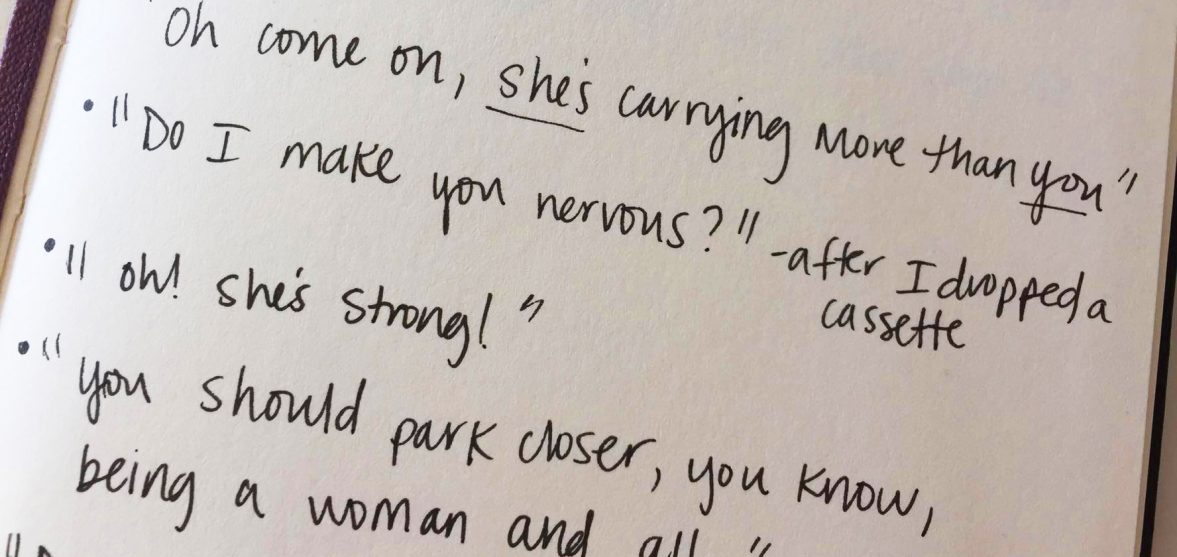 "Oh come on, she's carrying more than you"
• "Do I make you nervous?" -after I dropped a
cassette
• "oh! she's strong!"
• "you should park closer, you know,
being a woman and all"